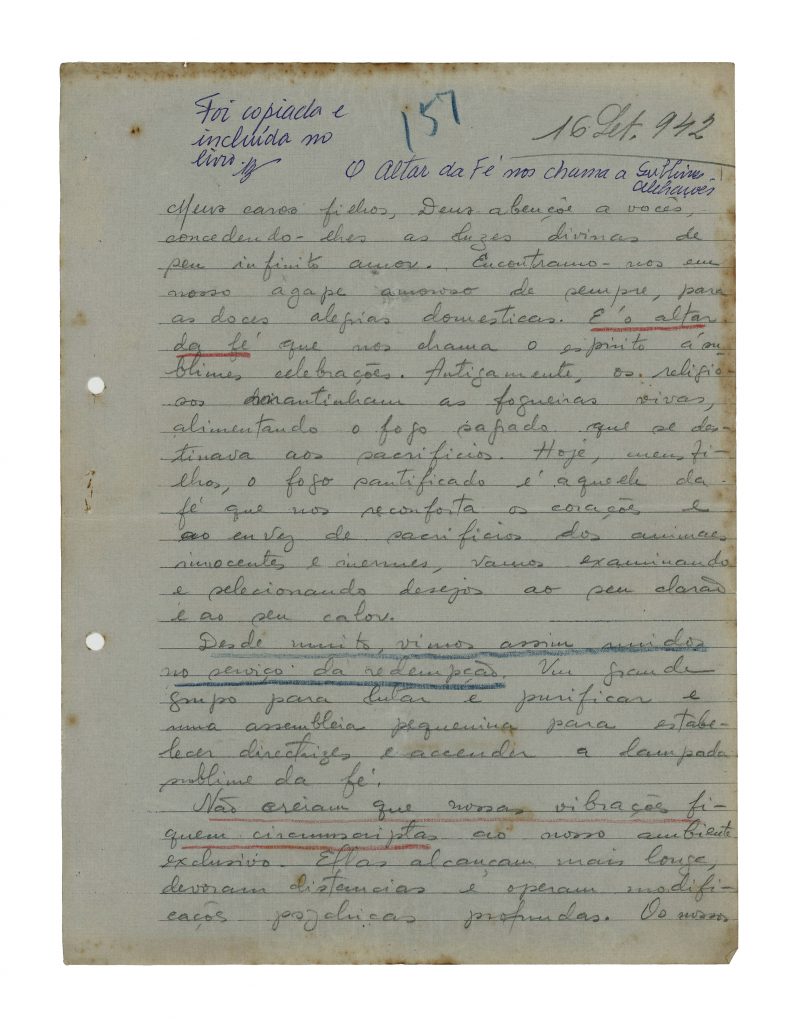 Foi copiada e
incluída no
livro.
157
16 Set. 942
O Altar da Fé nos chama a
Meus caros filhos, Deus abençõe a vocês,
concedendo-lhes as luzes divinas de
seu infinito amor. Encontramo-nos em
nosso agape amoroso de sempre, para
as doces alegrias domesticas. E' o altar
da fé que nos chama o espirito á su-
blimes celebrações. Antigamente, os religio-
sos mantinham as fogueiras vivas,
alimentando o fogo sagrado que se des-
tinava aos sacrificios. Hoje, meus fi-
lhos, o fogo santificado é aquele da
fé que nos reconforta os corações e
ao envez de sacrificios dos animaes
innocentes e inermes, vamos examinando
e selecionando desejos ao seu clarão
e ao seu calor.
Desde muito, vimos assim unidos
no serviço da redempção. Um grande
grupo para lutar e purificar e
uma assembleia pequenina para estabe-
lecer directrizes e accender a lampada
sublime da fé.
Não creiam que nossas vibrações fi-
quem circumscriptas ao nosso ambiente
exclusivo. Ellas alcançam mais longe,
devoram distancias e operam modifi-
cações psychicas profundas. Os nossos